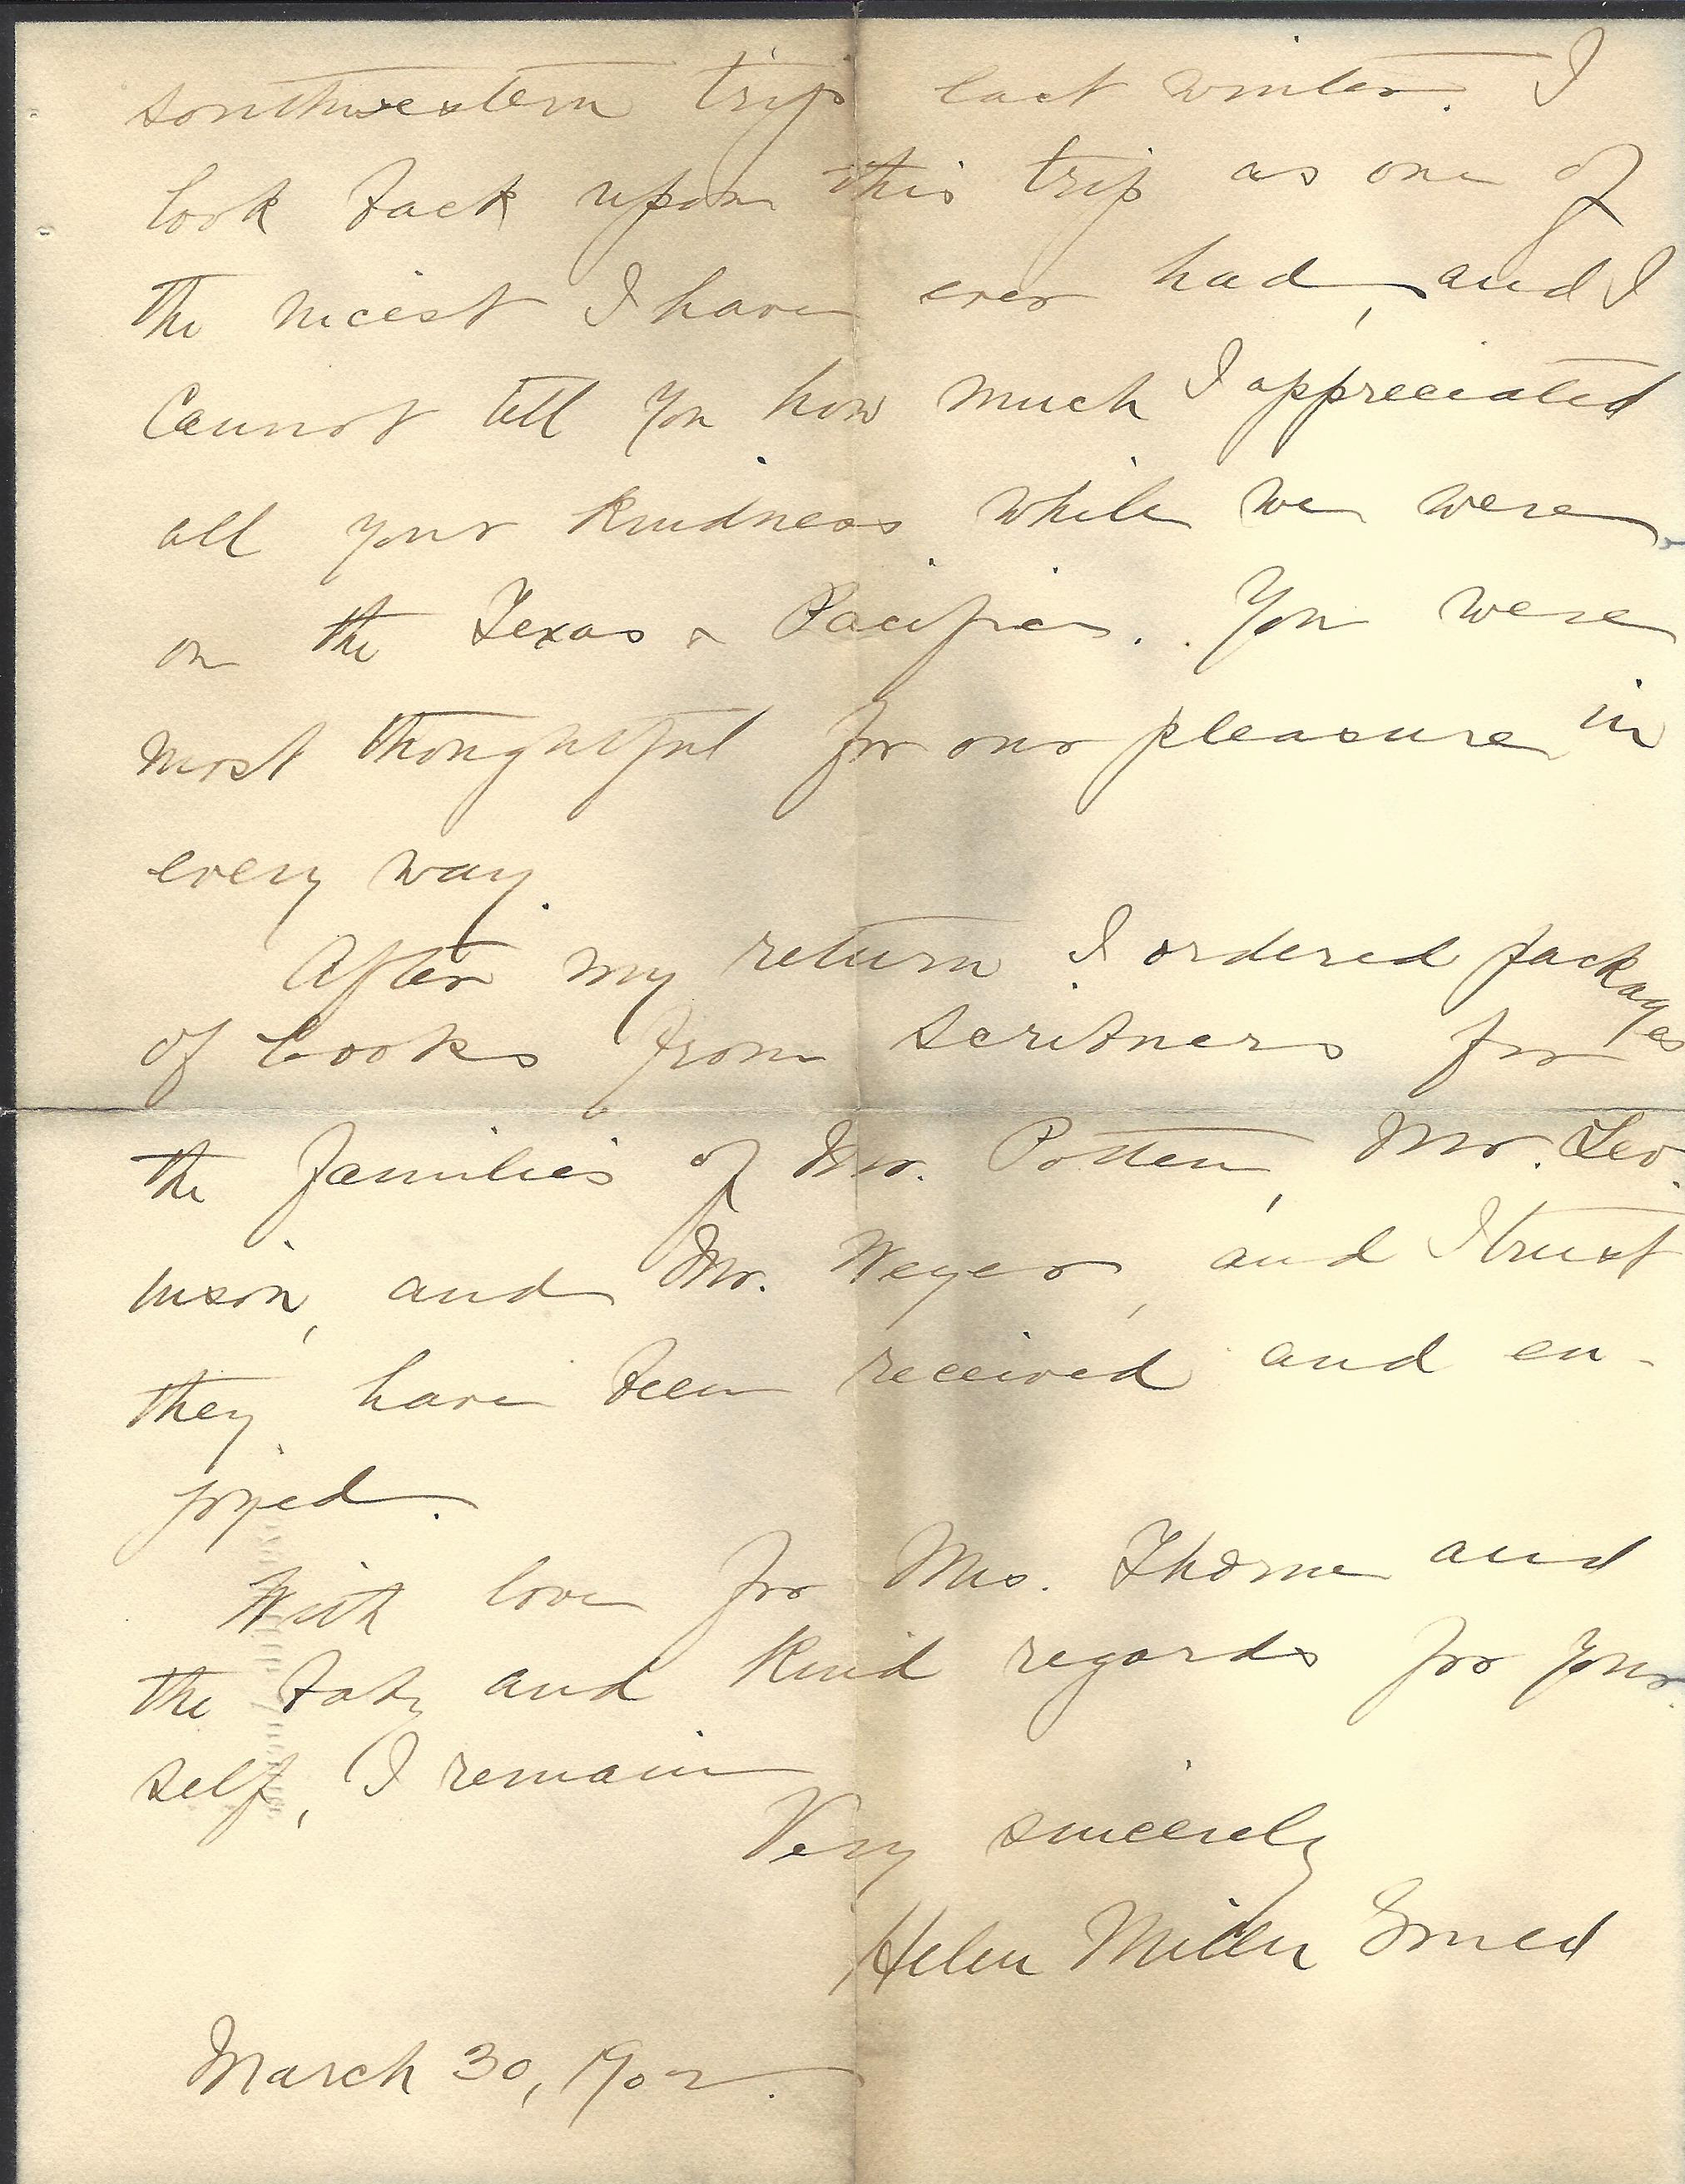 southwestern trip last winter. I
look back upon this trip as one of
the nicest I have ever had, and I
cannot tell you how much I appreciated
all your kindness while we were
on the Texas & Pacific. You were
most thoughtful for our pleasure in
every way.
After my return I ordered packages
of books from Scribners for
the families of Mr. Potten, Mr. Lev.
inson, and Mr. Weyer, and I trust
they have been received and en-
joyed.
With love for Mrs. Thorne and
the baby and kind regards for your
self, I remain
Very sincerely
Helen Miller Gould
March 30, 1902.